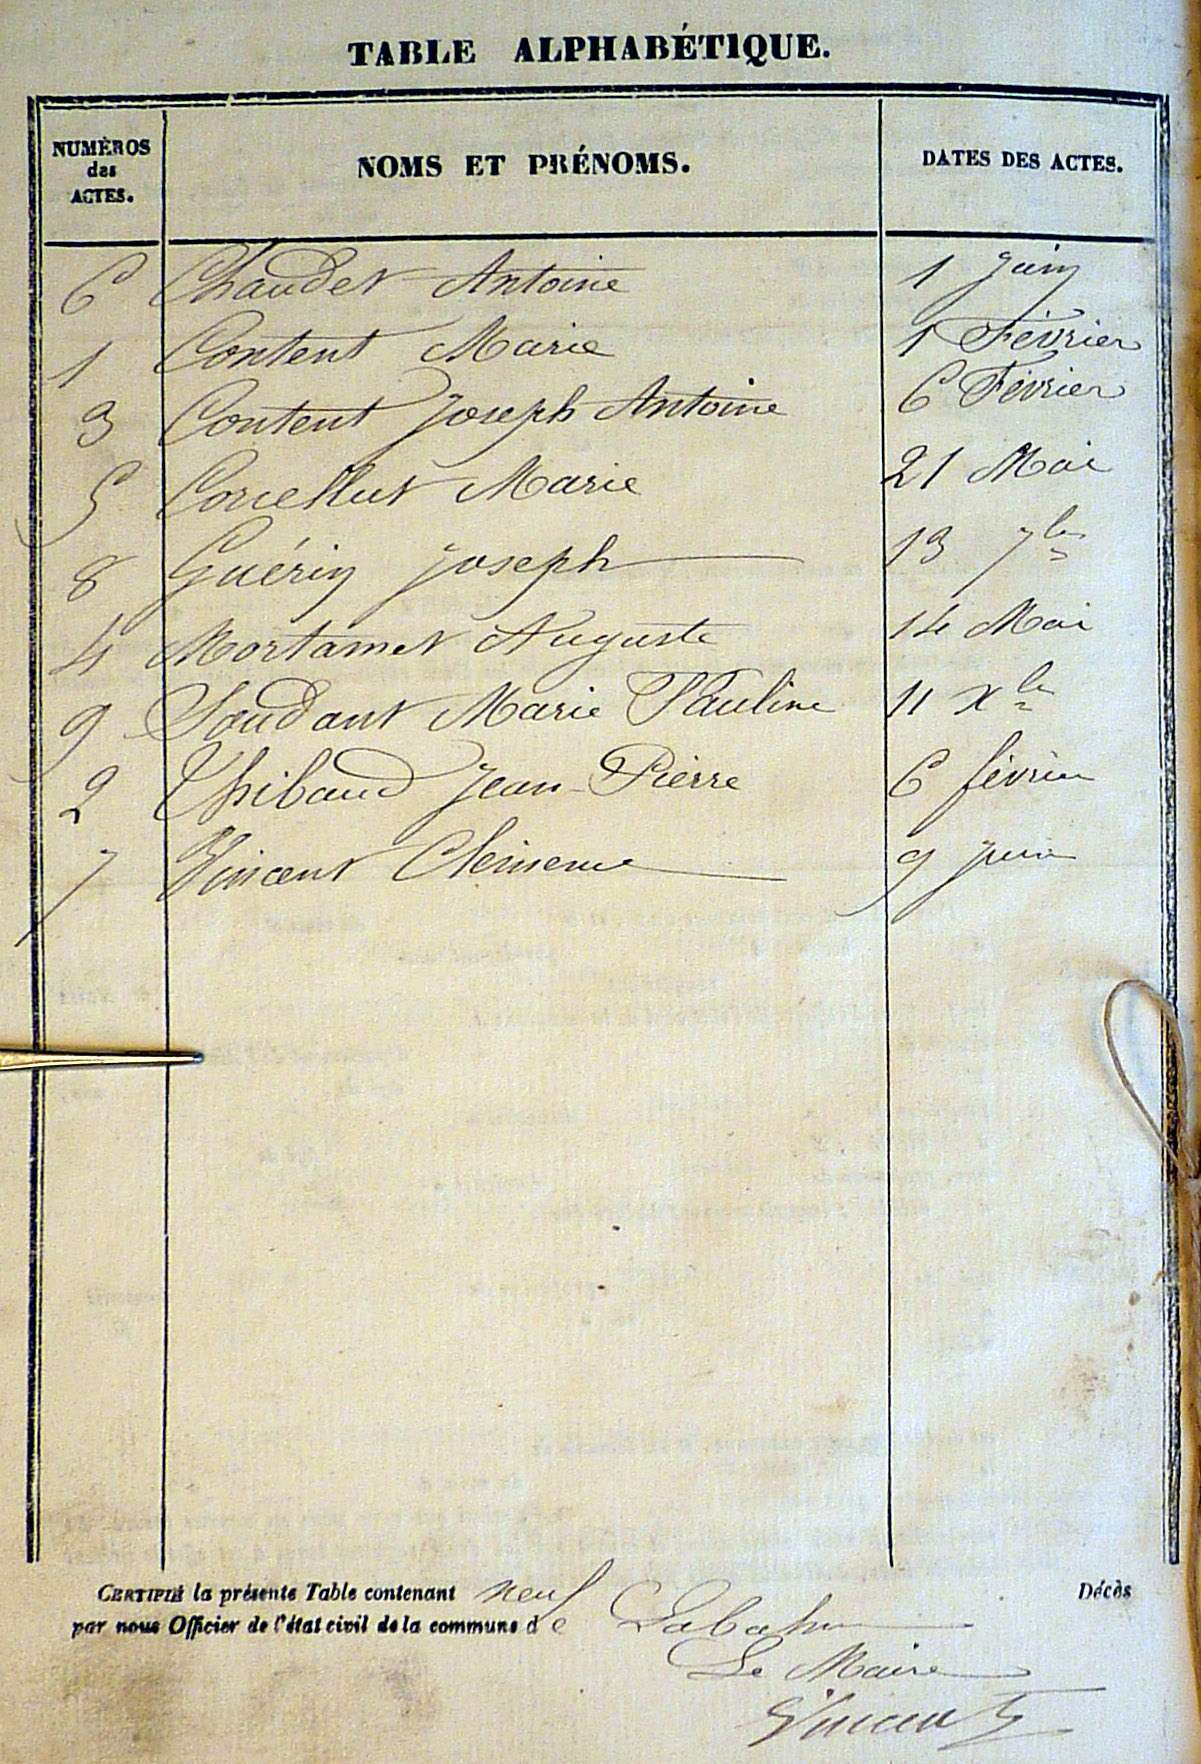 TABLE ALPHABÉTIQUE.
NUMÉROS des ACTES. NOMS ET PRÉNOMS. DATES DES ACTES.
6 Chaudet Antoine 1 Juin
1 Content Marie 1 Février
3 Content Joseph Antoine 6 Février
5 Corcellut Marie 21 Mai
8 Guérin Joseph 13 7bre
4 Mortamet Auguste 14 Mai
9 Soudant Marie Pauline 11 xbre
2 Thibaud Jean-Pierre 6 février
7 Vincent Clémence 9 Juin
CERTIFIÉ la présente Table contenant neuf Décès
par nous Officier de l'état civil de la commune de
Le Maire
Vincent